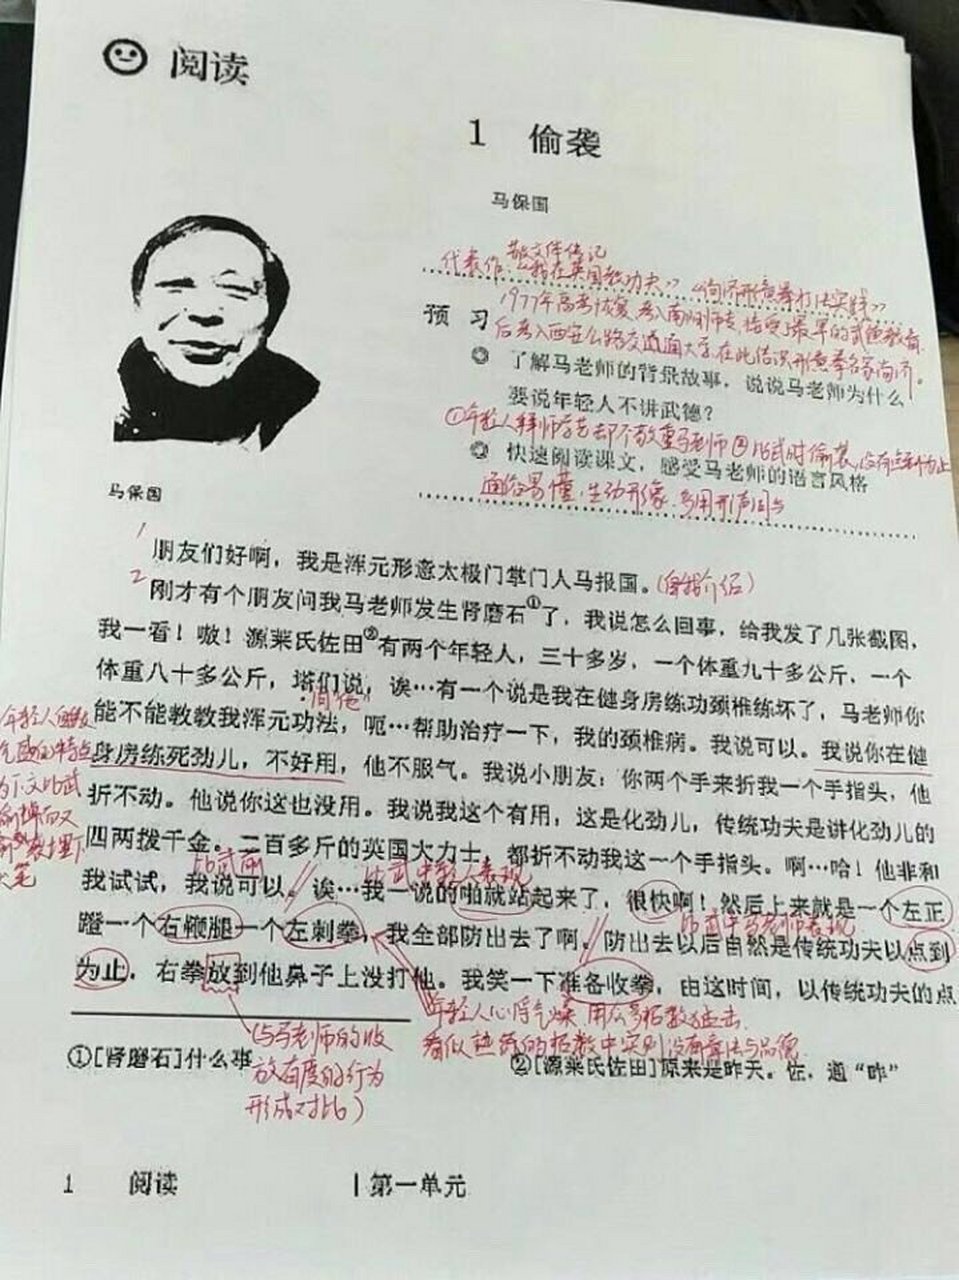 阅读
1 偷袭
马保国
散文体传记
代表作：《我在英国教功夫》《尚济形意拳打法实践》
1977年高考恢复，考入南阳师专，接受了最早的武德教育.
预 习
后考入西安公路交通大学，在此结识形意拳名家尚济。
◎ 了解马老师的背景故事，说说马老师为什么
要说年轻人不讲武德？
①年轻人拜师学艺却不敬重马老师②比武时偷袭，没有点到为止
◎ 快速阅读课文，感受马老师的语言风格
通俗易懂，生动形象，多用形声词与
马保国
1
朋友们好啊，我是浑元形意太极门掌门人马报国。(自我介绍)
2
刚才有个朋友问我马老师发生肾磨石①了，我说怎么回事，给我发了几张截图，
我一看！嗷！源莱氏佐田②有两个年轻人，三十多岁，一个体重九十多公斤，一个
体重八十多公斤，塔们说，诶…有一个说是我在健身房练功颈椎练坏了，马老师你
能不能教教我浑元功法，呃…帮助治疗一下，我的颈椎病。我说可以。我说你在健
身房练死劲儿，不好用，他不服气。我说小朋友：你两个手来折我一个手指头，他
折不动。他说你这也没用。我说我这个有用，这是化劲儿，传统功夫是讲化劲儿的
四两拨千金。二百多斤的英国大力士，都折不动我这一个手指头。啊…哈！他非和
比武前
比武中年轻人表现
我试试，我说可以。诶…我一说的啪就站起来了，很快啊！然后上来就是一个左正
比武中马老师表现
蹬一个右鞭腿一个左刺拳，我全部防出去了啊。防出去以后自然是传统功夫以点到
为止，右拳放到他鼻子上没打他。我笑一下准备收拳，由这时间，以传统功夫的点
年轻人心浮气燥，用众多招数猛击.
看似熟练的招数中实则没有章法与品德
(与马老师的收
放有度的行为
形成对比)
①[肾磨石]什么事
②[源莱氏佐田]原来是昨天。佐，通“昨”
1 阅读 | 第一单元